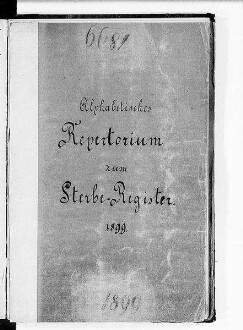 6689
Alphabetisches
Repertorium
zum
Sterbe-Register
1899.
1899